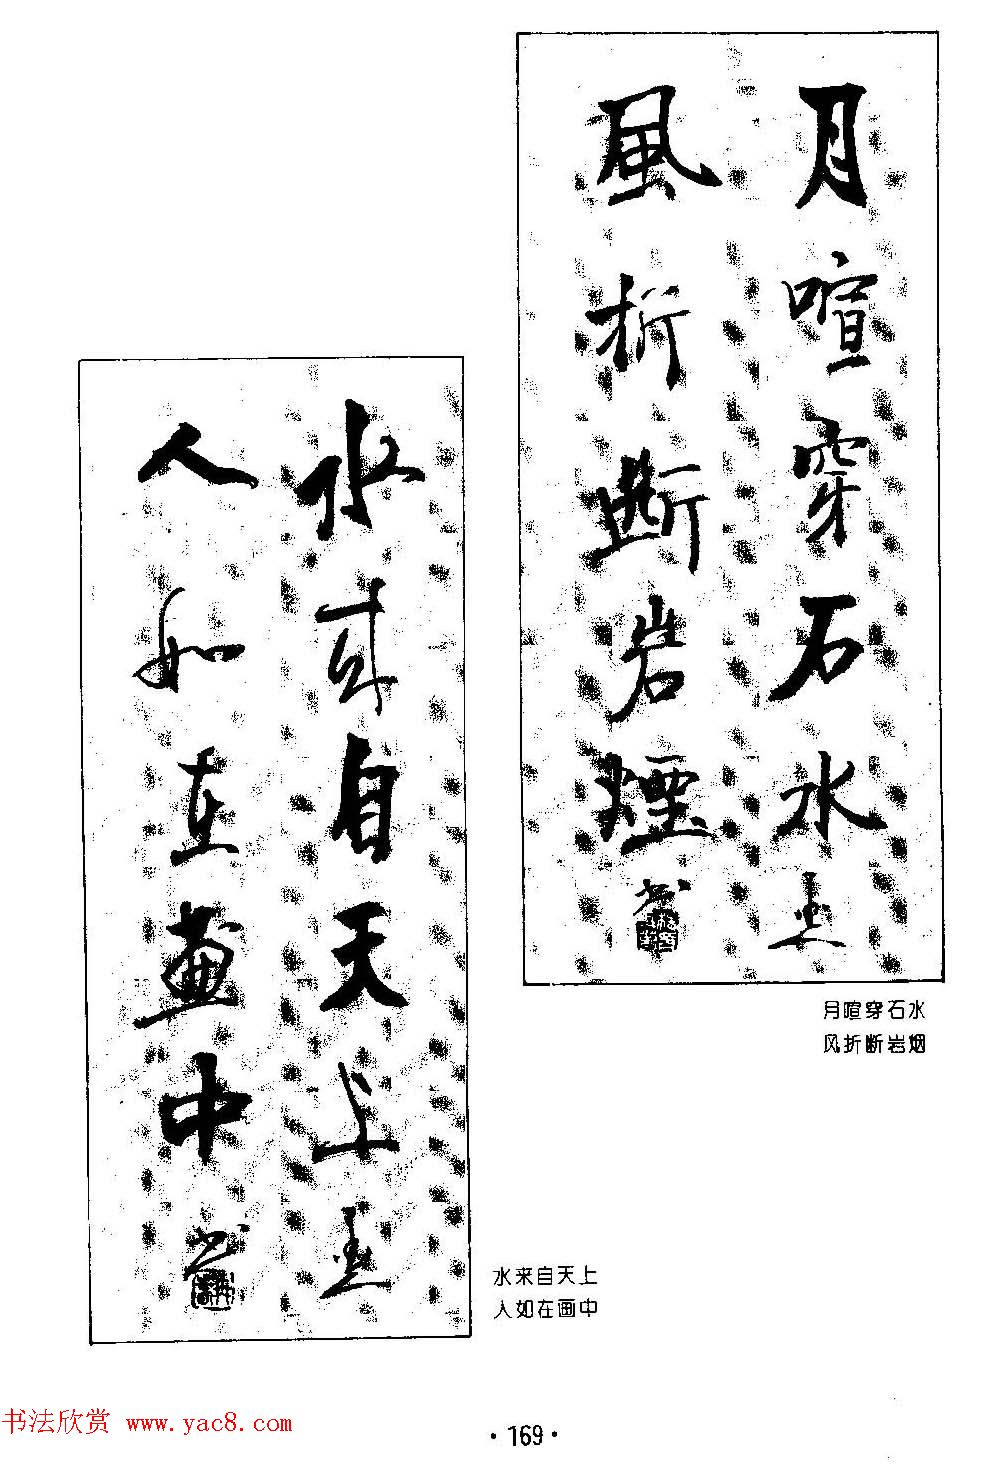 月喧穿石水
風折斷岩煙
书
月喧穿石水
风折断岩烟
水來自天上
人如在畫中
书
水来自天上
人如在画中
书法欣赏 www.yac8.com
·169·